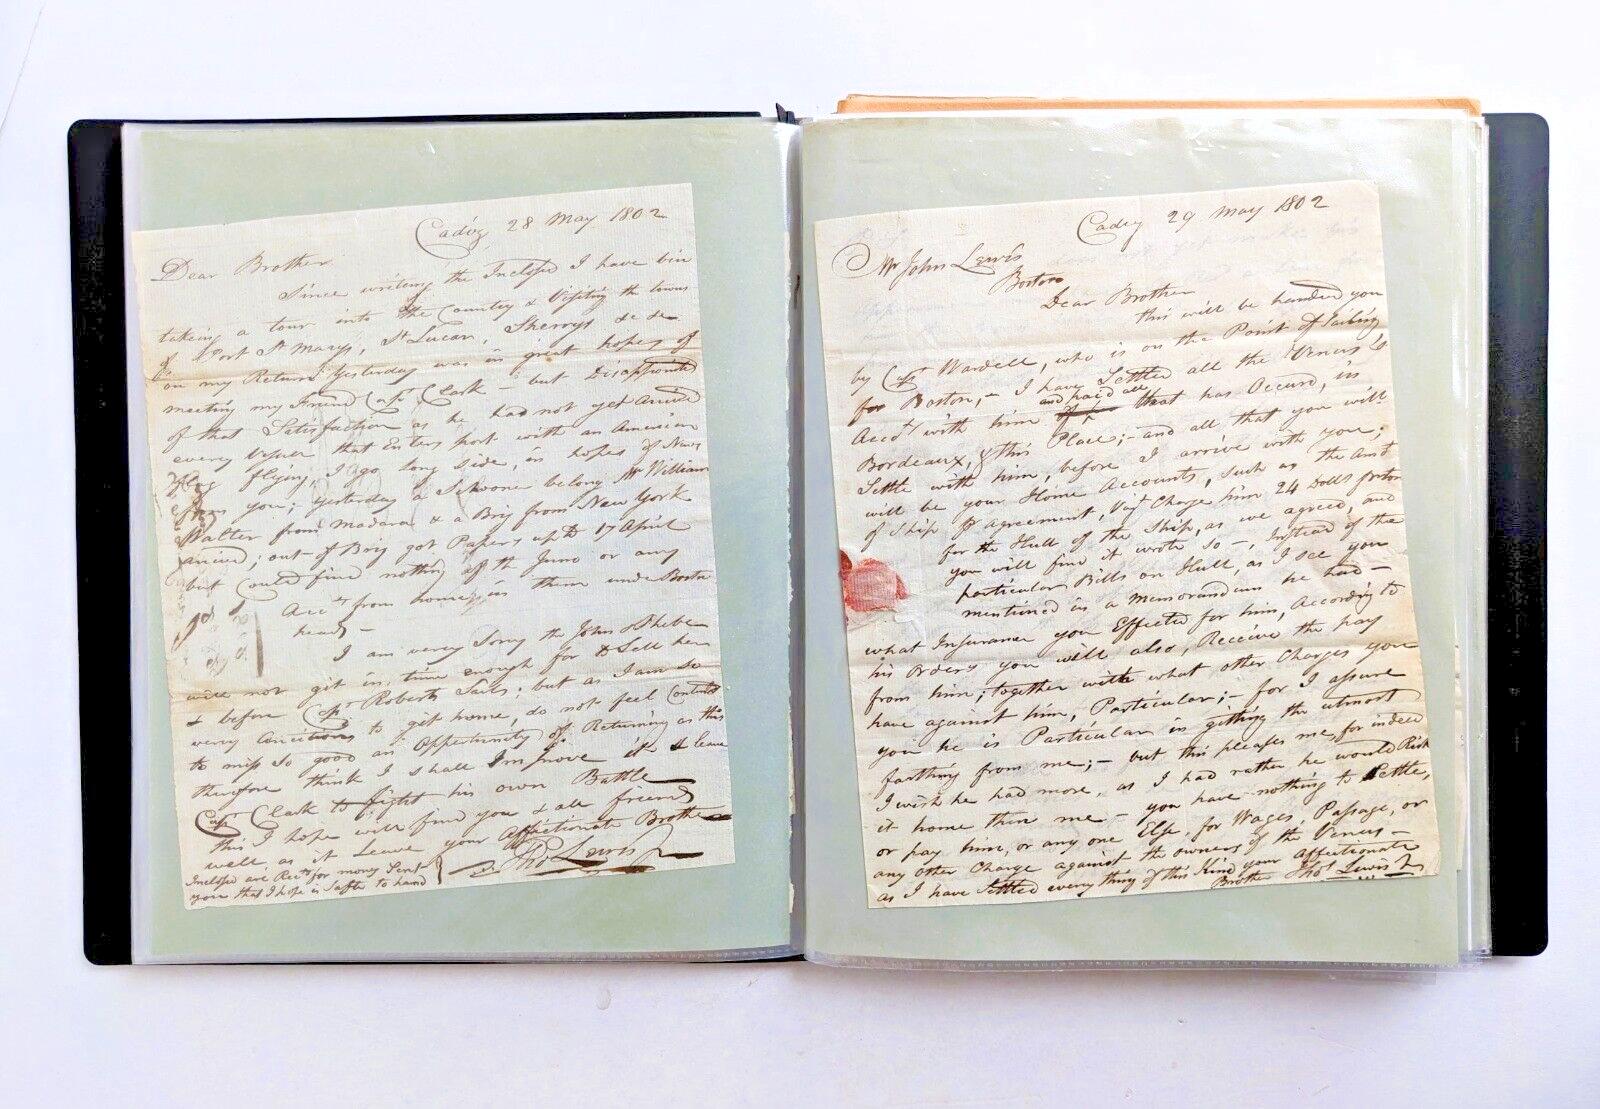 Cadiz 28 May 1802
Dear Brother
Since writing the Inclosed I have bin
taking a tour into the Country & Visiting the towns
of Port St Marys, St Lucar, Sherrys &c &c
on my Return Yesterday was in great hopes of
meeting my Friend Capt Clark - but Disapointed
of that Satisfaction as he had not yet arived
every Vessel that Enters port with an American
Flag flying, I go long side, in hopes of News
from you; yesterday a Schooner belong Mr William
Walter from Madara & a Brig from New York
arived; out of Brig got Papers up to 17 April
but Could find nothing of the Juno or any
Acct from home in them under Boston
head -
I am verry Sorry the John & Phebe
will not git in time enough for to Sell her
& before Capt Roberts Sails; but as I am so
verry to git home, do not feel Contented
to miss so good an Oppertunity of Returning as this
therefore think I shall Improve it & leave
Capt Clark to fight his own Battle
this I hope will find you & all friends
well as it Leave your Affectionate Brother
Thos Lewis
Inclosed are Rects for money Sent
you that I hope is Safte to hand
Cadiz 29 May 1802
Mr John Lewis
Boston
Dear Brother
this will be handed you
by Capt Wardell, who is on the Point of Sailing
for Boston, - I have Settled all the Venus
and paid all
Acct with him that has Occurd, in
Bordeaux, & this Place; - and all that you will
Settle with him, before I arrive with you;
will be your Home Accounts, Such as the Amt
of Ship pr agreement, Viz Charge him 24 Dolls pr ton
for the Hull of the Ship, as we agreed, and
you will find it wrote so -, Instead of the
particular Bills on Hull, as I see you
mentioned in a Memorandum he had -
what Insurance you Effected for him, According to
his Orders you will also, Receive the pay
from him; together with what other Charges you
have against him, Particular; - for I assure
you he is Particular in gitting the utmost
farthing from me; - but this pleases me, for indeed
I wish he had more, as I had rather he would Risk
it home then me - you have nothing to Settle,
or pay him, or any one Else, for Wages, Passage, or
any other Charge against the owners of the Venus -
as I have Settled every thing of this Kind your Affectionate
Brother Thos Lewis